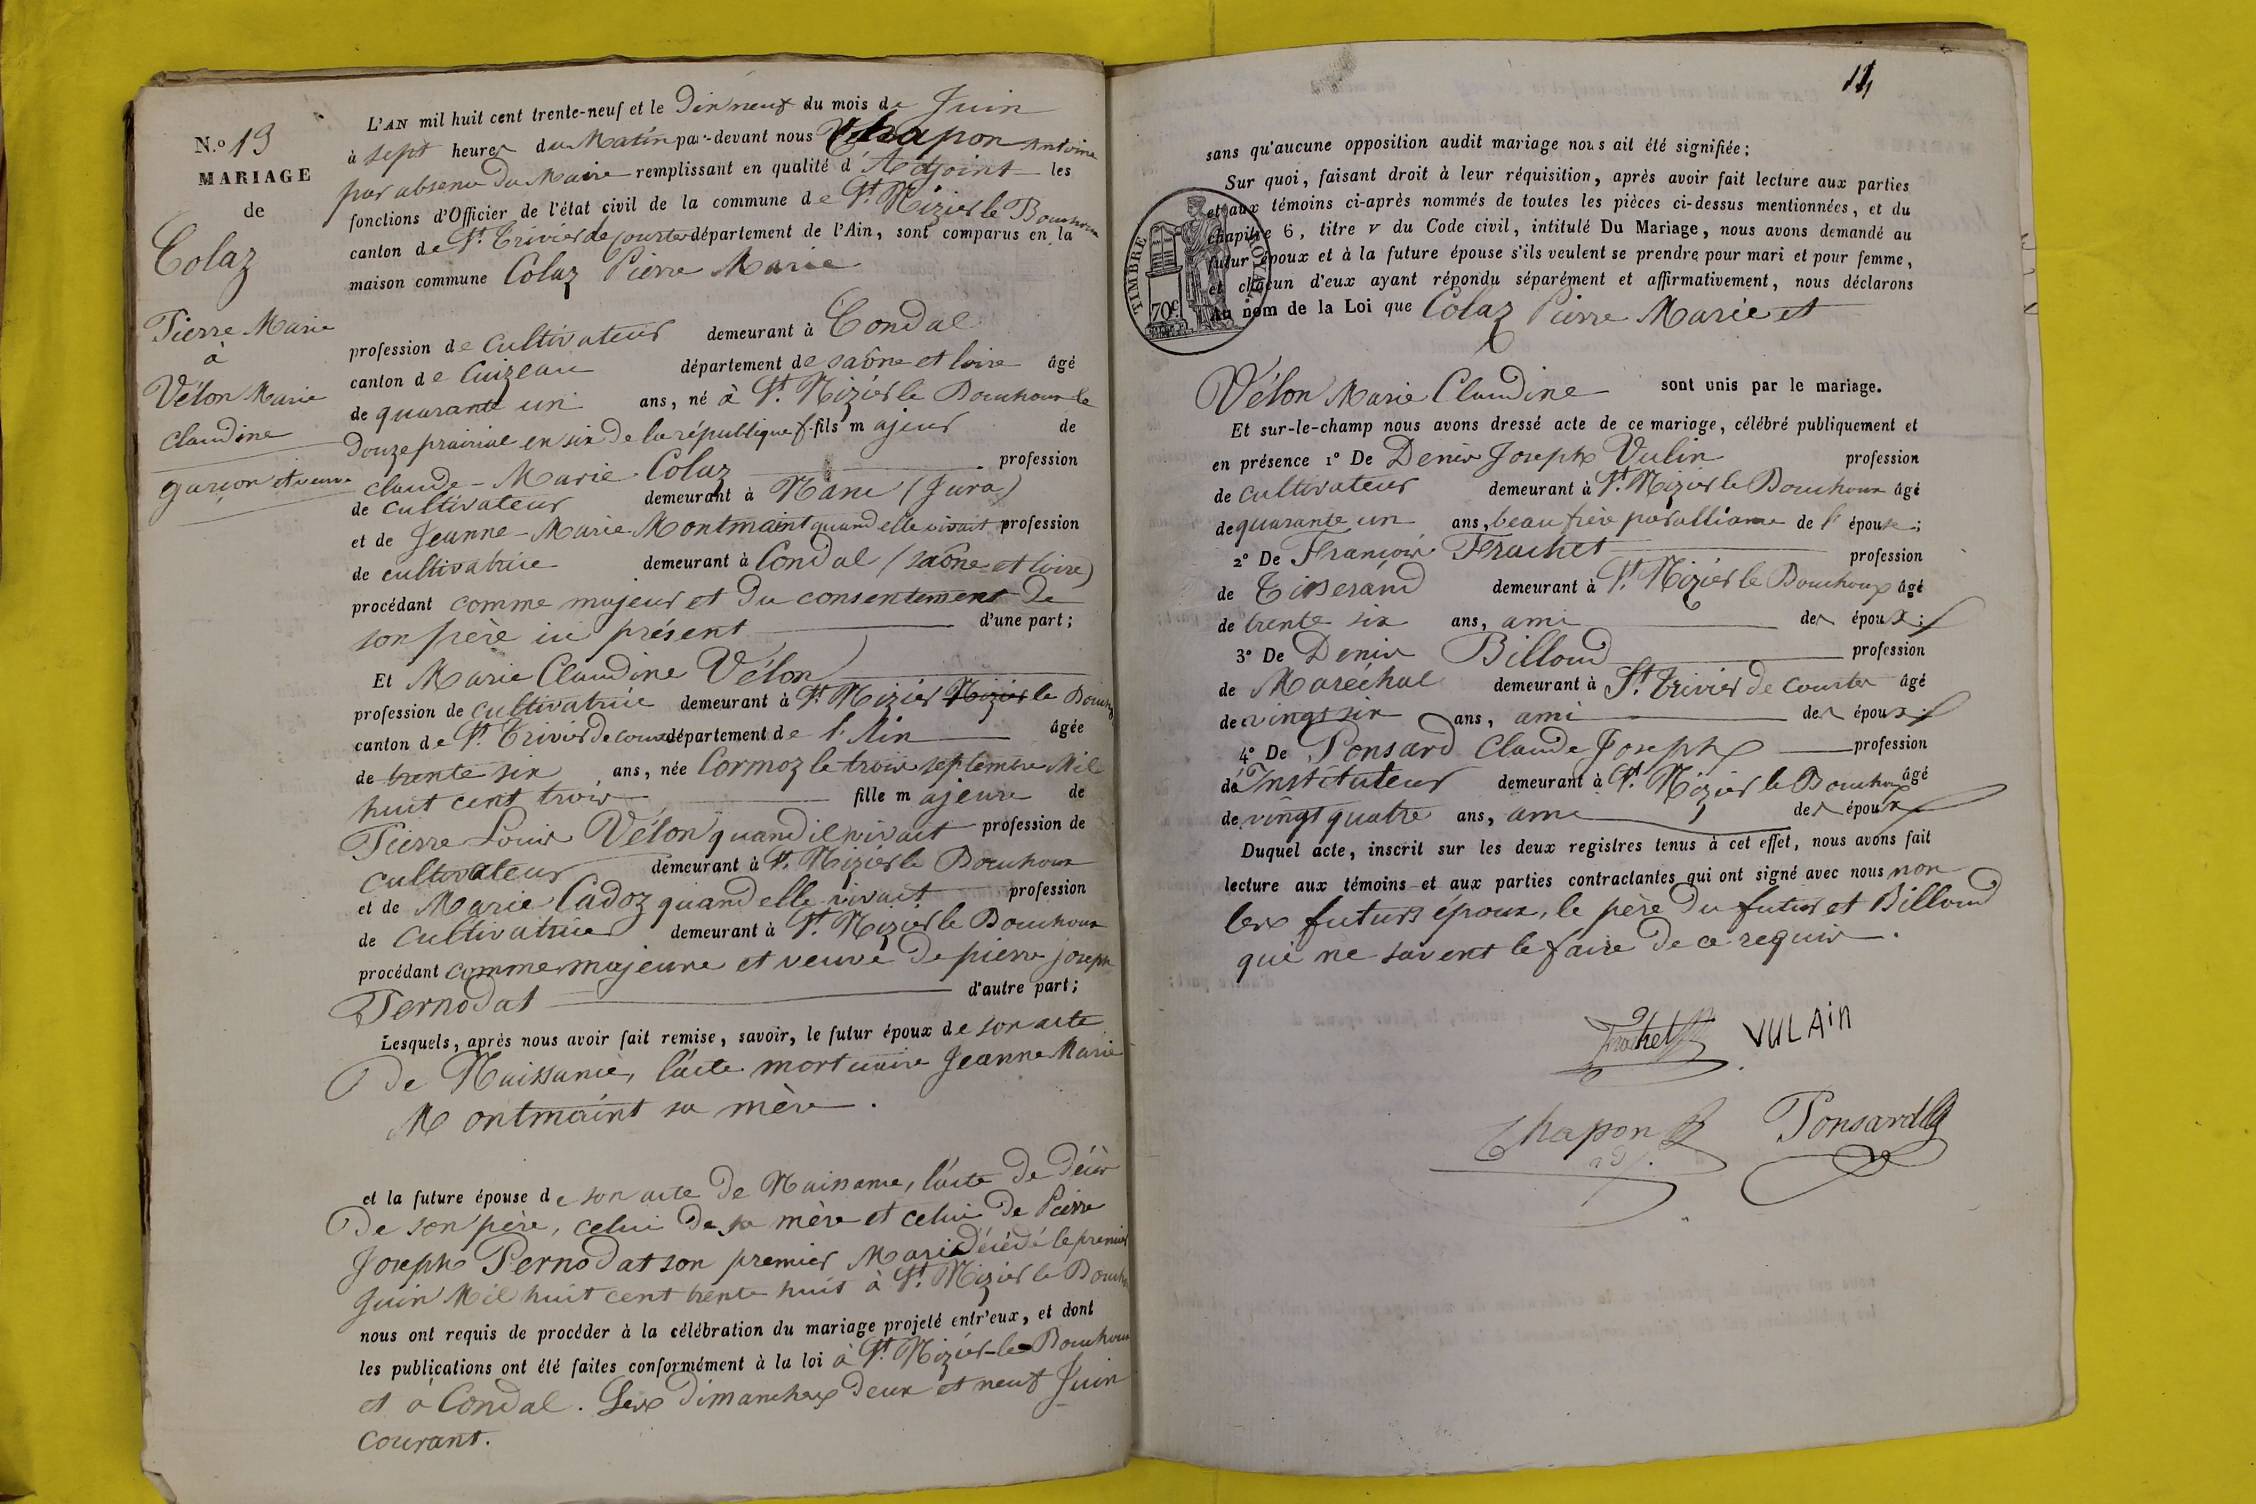 N.o 13
MARIAGE
de
Colaz
Pierre Marie
à
Vélon Marie
Claudine
garçon et veuve
L'AN mil huit cent trente-neuf et le Dix neuf du mois de Juin
à sept heures du Matin par-devant nous Chapon Antoine
par absence du Maire remplissant en qualité d'Adjoint les
fonctions d'Officier de l'état civil de la commune de St. Nizier le Bouchoux
canton de St. Trivier de Courtes département de l'Ain, sont comparus en la
maison commune Colaz Pierre Marie
profession de cultivateur demeurant à Condal
canton de Cuizeau département de saône et loire âgé
de quarante un ans, né à St. Nizier le Bouchoux le
Douze prairial en six de la république fils majeur de
Claude-Marie Colaz profession
de cultivateur demeurant à Nanc (Jura)
et de Jeanne-Marie Montmaint quand elle vivait profession
de cultivatrice demeurant à Condal (saône et loire)
procédant comme majeur et du consentement de
son père ici présent d'une part;
Et Marie Claudine Vélon
profession de cultivatrice demeurant à St. Nizier Nizier le Bouch
canton de St. Trivier de cour département de l'Ain âgée
de trente six ans, née Cormoz le trois septembre Mil
huit cent trois fille majeure de
Pierre Louis Vélon quand il vivait profession de
cultivateur demeurant à St. Nizier le Bouchoux
et de Marie Cadoz quand elle vivait profession
de Cultivatrice demeurant à St. Nizier le Bouchoux
procédant comme majeure et veuve de pierre joseph
Pernodat d'autre part;
Lesquels, après nous avoir fait remise, savoir, le futur époux de son acte
De Naissance, l'acte mortuaire Jeanne Marie
Montmaint sa mère.
et la future épouse de son acte de Naissance, l'acte de décès
De son père, celui de sa mère et celui de Pierre
Joseph Pernodat son premier Mari décédé le premier
Juin Mil huit cent trente huit à St. Nizier le Bouch
nous ont requis de procéder à la célébration du mariage projeté entr'eux, et dont
les publications ont été faites conformément à la loi à St. Nizier-le-Bouchoux
et à Condal. Les Dimanches deux et neuf Juin
courant.
sans qu'aucune opposition audit mariage nous ait été signifiée;
Sur quoi, faisant droit à leur réquisition, après avoir fait lecture aux parties
et aux témoins ci-après nommés de toutes les pièces ci-dessus mentionnées, et du
chapitre 6, titre v du Code civil, intitulé Du Mariage, nous avons demandé au
futur époux et à la future épouse s'ils veulent se prendre pour mari et pour femme,
et chacun d'eux ayant répondu séparément et affirmativement, nous déclarons
Au nom de la Loi que Colaz Pierre Marie et
TIMBRE ROYAL
70c
Vélon Marie Claudine sont unis par le mariage.
Et sur-le-champ nous avons dressé acte de ce mariage, célébré publiquement et
en présence 1° De Denis Joseph Vulin profession
de cultivateur demeurant à St. Nizier le Bouchoux âgé
de quarante un ans, beau frère par alliance de l'épouse;
2° De François Frachet profession
de Tisserand demeurant à St. Nizier le Bouchoux âgé
de trente six ans, ami des époux;
3° De Denis Billoud profession
de Maréchal demeurant à St. Trivier de Courtes âgé
de vingt six ans, ami des époux;
4° De Ponsard Claude Joseph profession
de Instituteur demeurant à St. Nizier le Bouchoux âgé
de vingt quatre ans, ami des époux
Duquel acte, inscrit sur les deux registres tenus à cet effet, nous avons fait
lecture aux témoins et aux parties contractantes qui ont signé avec nous non
les futurs époux, le père du futur et Billoud
qui ne savent le faire de ce requis.
Frachet VULAIN
Chapon adj. Ponsard